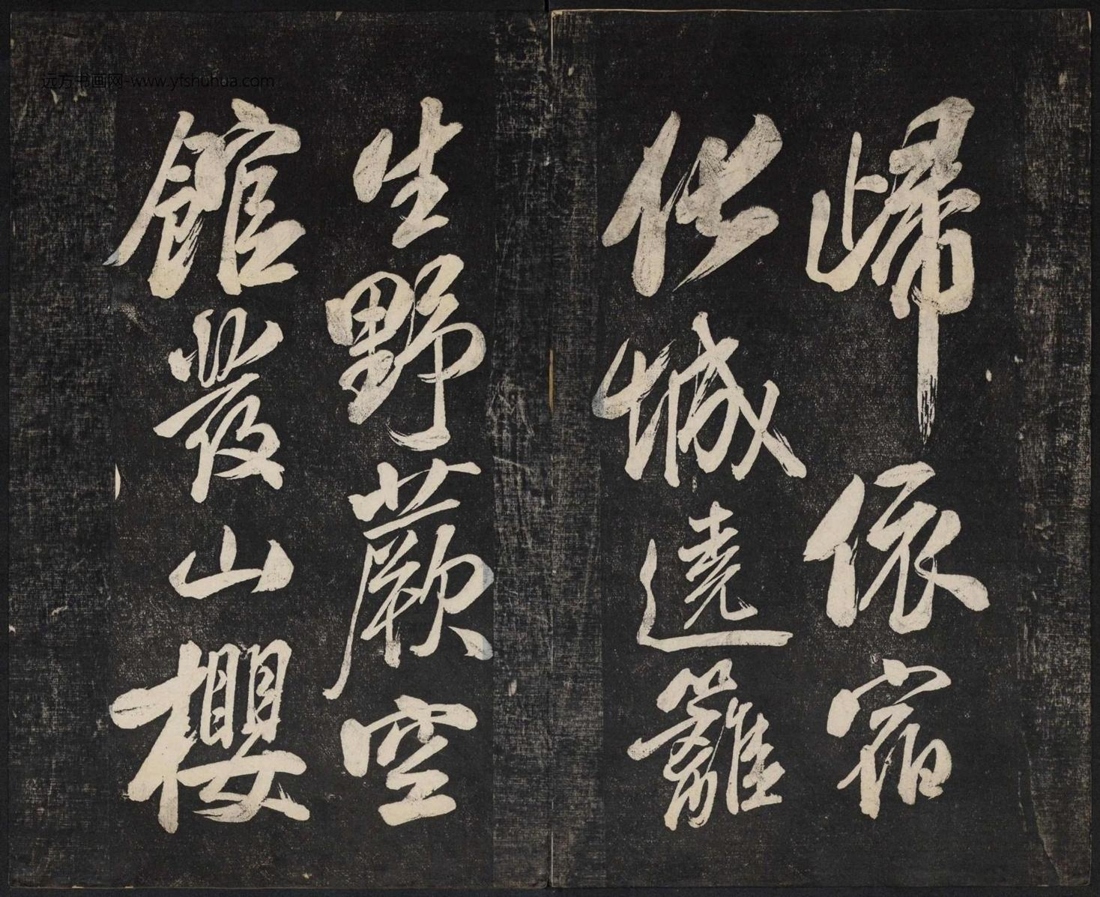 歸依宿
化城遶籬
生野蕨空
館發山櫻
远方书画网-www.yfshuhua.com